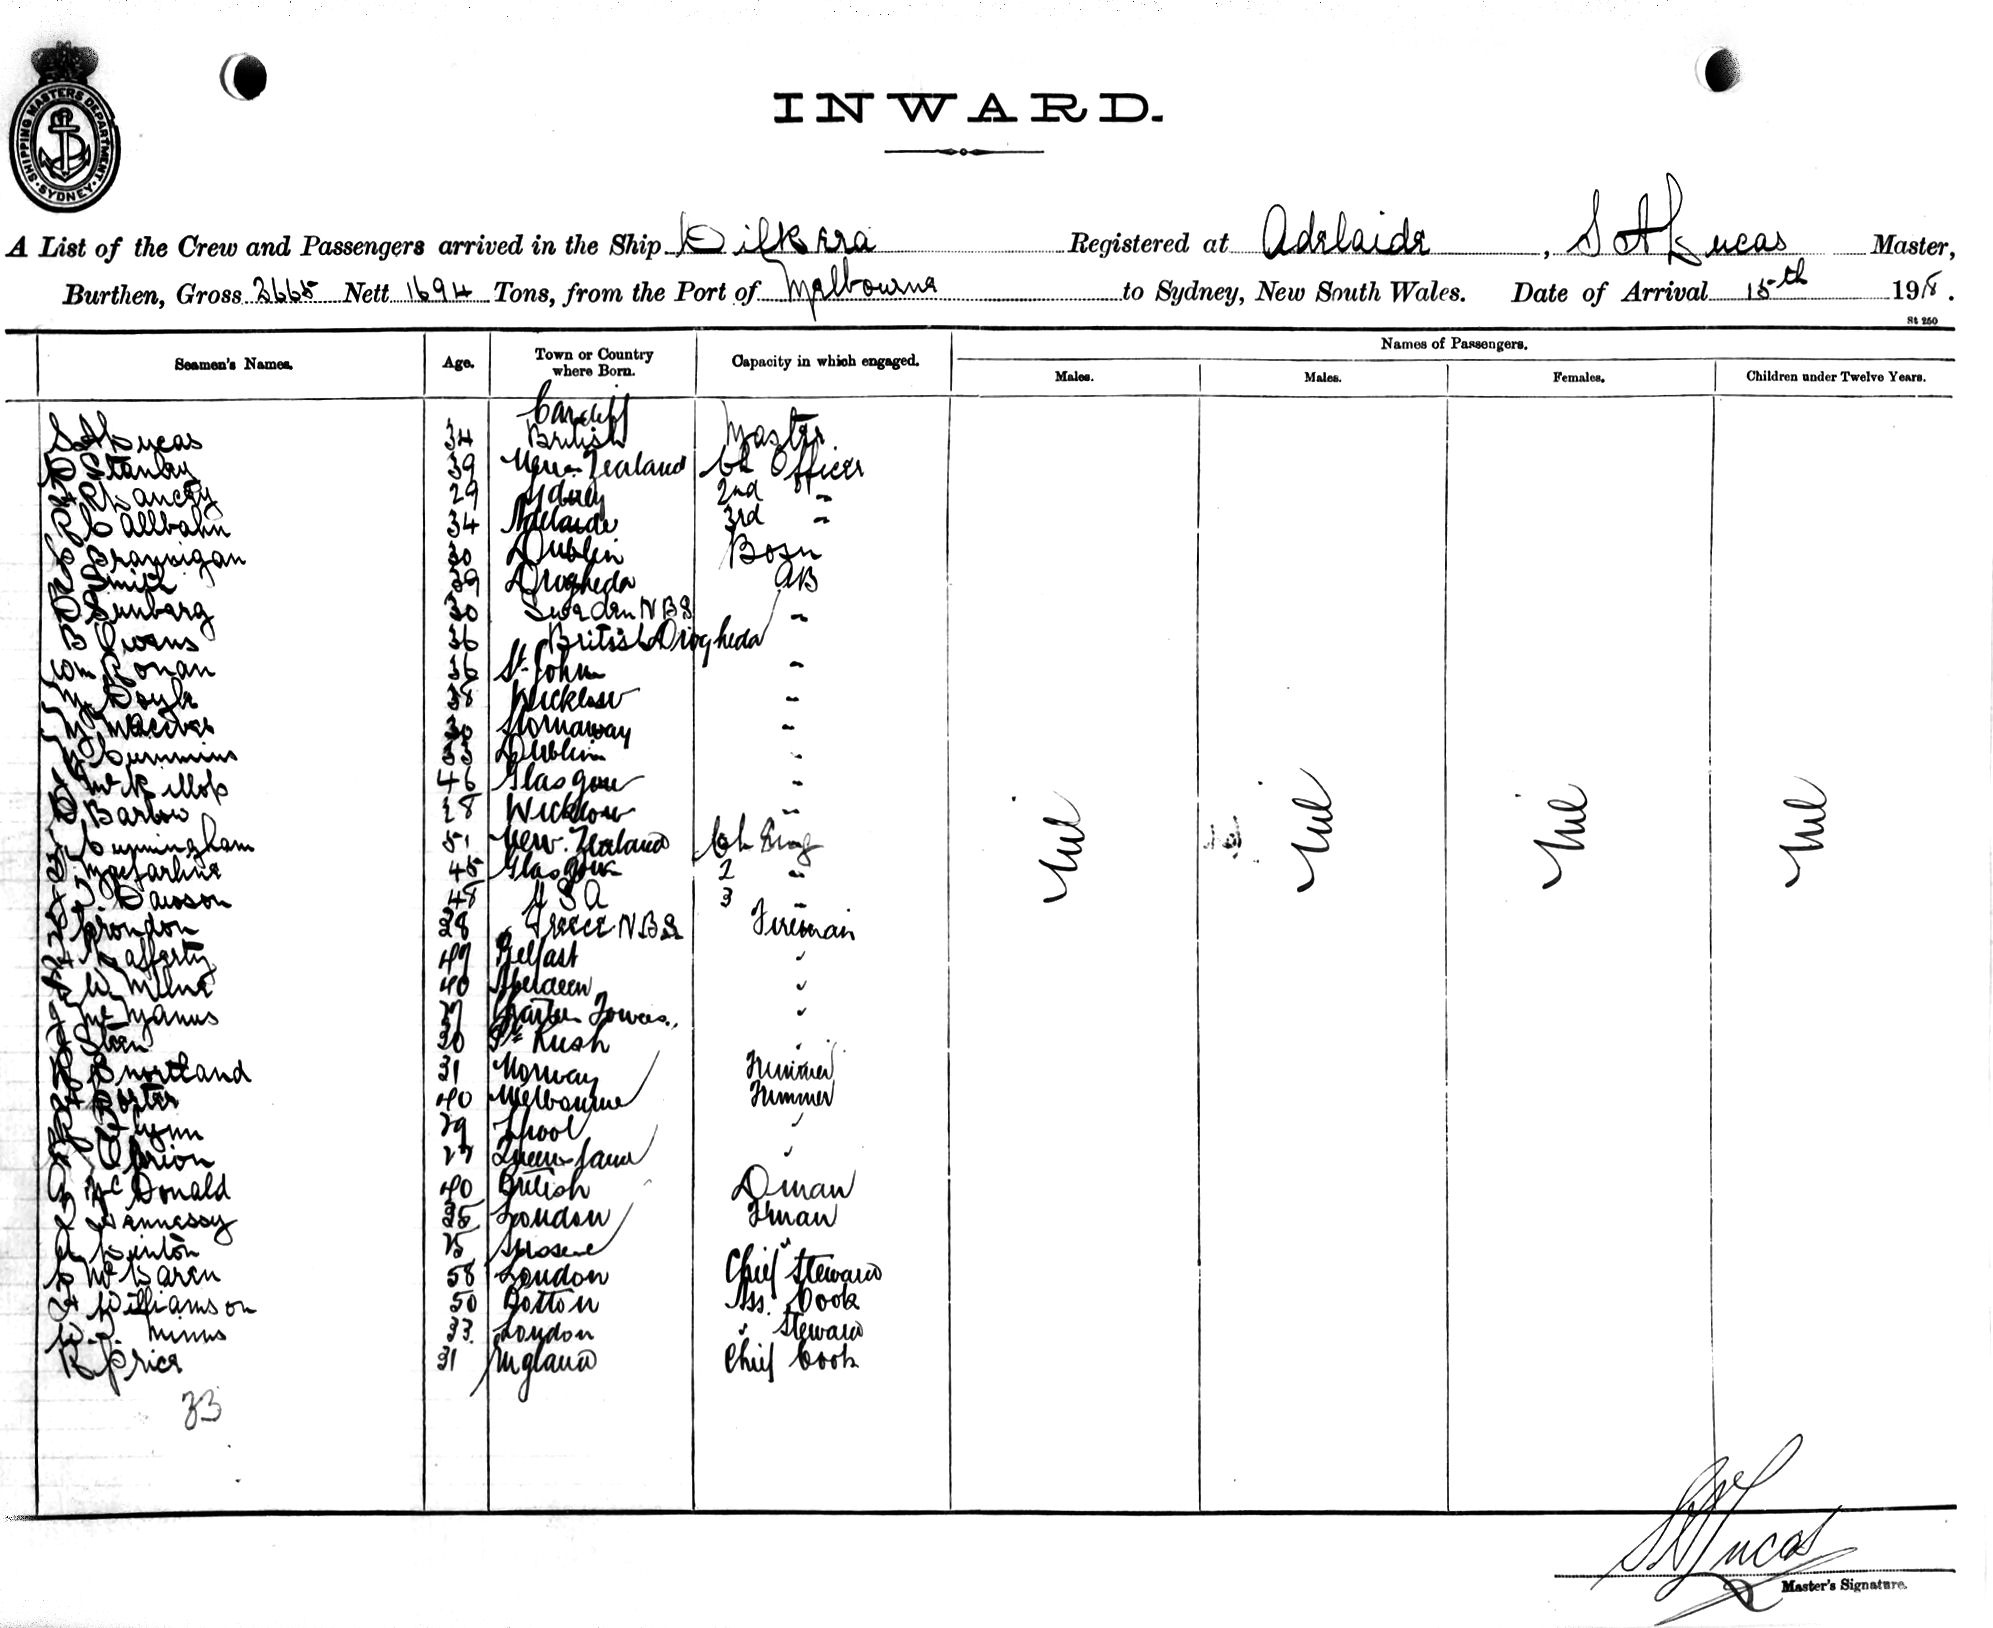 SHIPPING MASTERS DEPARTMENT. SYDNEY.
INWARD.
A List of the Crew and Passengers arrived in the Ship Dilkera Registered at Adelaide, S A Lucas Master,
Burthen, Gross 2665 Nett 1694 Tons, from the Port of Melbourne to Sydney, New South Wales. Date of Arrival 15th 1918.
St 250
Seamen's Names. Age. Town or Country where Born. Capacity in which engaged. Names of Passengers.
Males. Males. Females. Children under Twelve Years.
Cardiff
S A Lucas 34 British Master
Stanley 39 New Zealand Ch Officer
29 Sydney 2nd "
34 Adelaide 3rd "
Brannigan 30 Dublin Bosn
Smith 39 Drogheda AB
Sunbarg 30 Sweden NBS "
B Owens 36 British Drogheda
Wm Ronan 36 St John "
Doyle 38 Wicklow "
30 Stornaway "
Cummins 33 Dublin "
McKillop 46 Glasgow "
Barlow 28 Wicklow "
Cunningham 51 New Zealand Ch Eng
Macfarline 45 Glasgow 2 "
Dawson 48 U S A 3 "
28 Greece NBS Fireman
Rafferty 49 Belfast "
W Milne 40 Aberdeen "
McManus Charters Towers "
30 Pt Rush "
31 Norway Trimmer
Porter 40 Melbourne Trimmer
Flynn 29 Lpool "
27 Queensland "
McDonald 40 British Dman
Hennessy London Fman
25 "
McLaren 58 London Chief Steward
Williamson 50 Botton Ass. Cook
W. J. 33 London " Steward
R Price 31 England Chief Cook
Nil Nil Nil Nil
33
S A Lucas
Master's Signature.